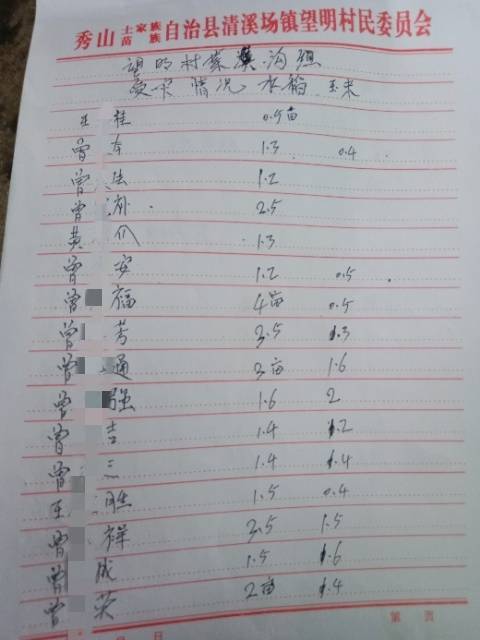 秀山土家族苗族自治县清溪场镇望明村民委员会
望明村茶溪沟组
受灾情况 水稻 玉米
王 桂 0.5亩
曾 本 1.3 0.4
曾 法 1.2
曾 2.5
黄 1.3
曾 安 1.2 0.5
曾 福 4亩 0.5
曾 芳 3.5 1.3
曾 通 3亩 1.6
曾 强 1.6 2
曾 吉 1.4 1.2
曾 三 1.4 1.4
王 胜 1.5 0.4
曾 祥 3.5 1.5
曾 成 1.5 1.6
曾 英 2亩 1.4
月 日 第 页